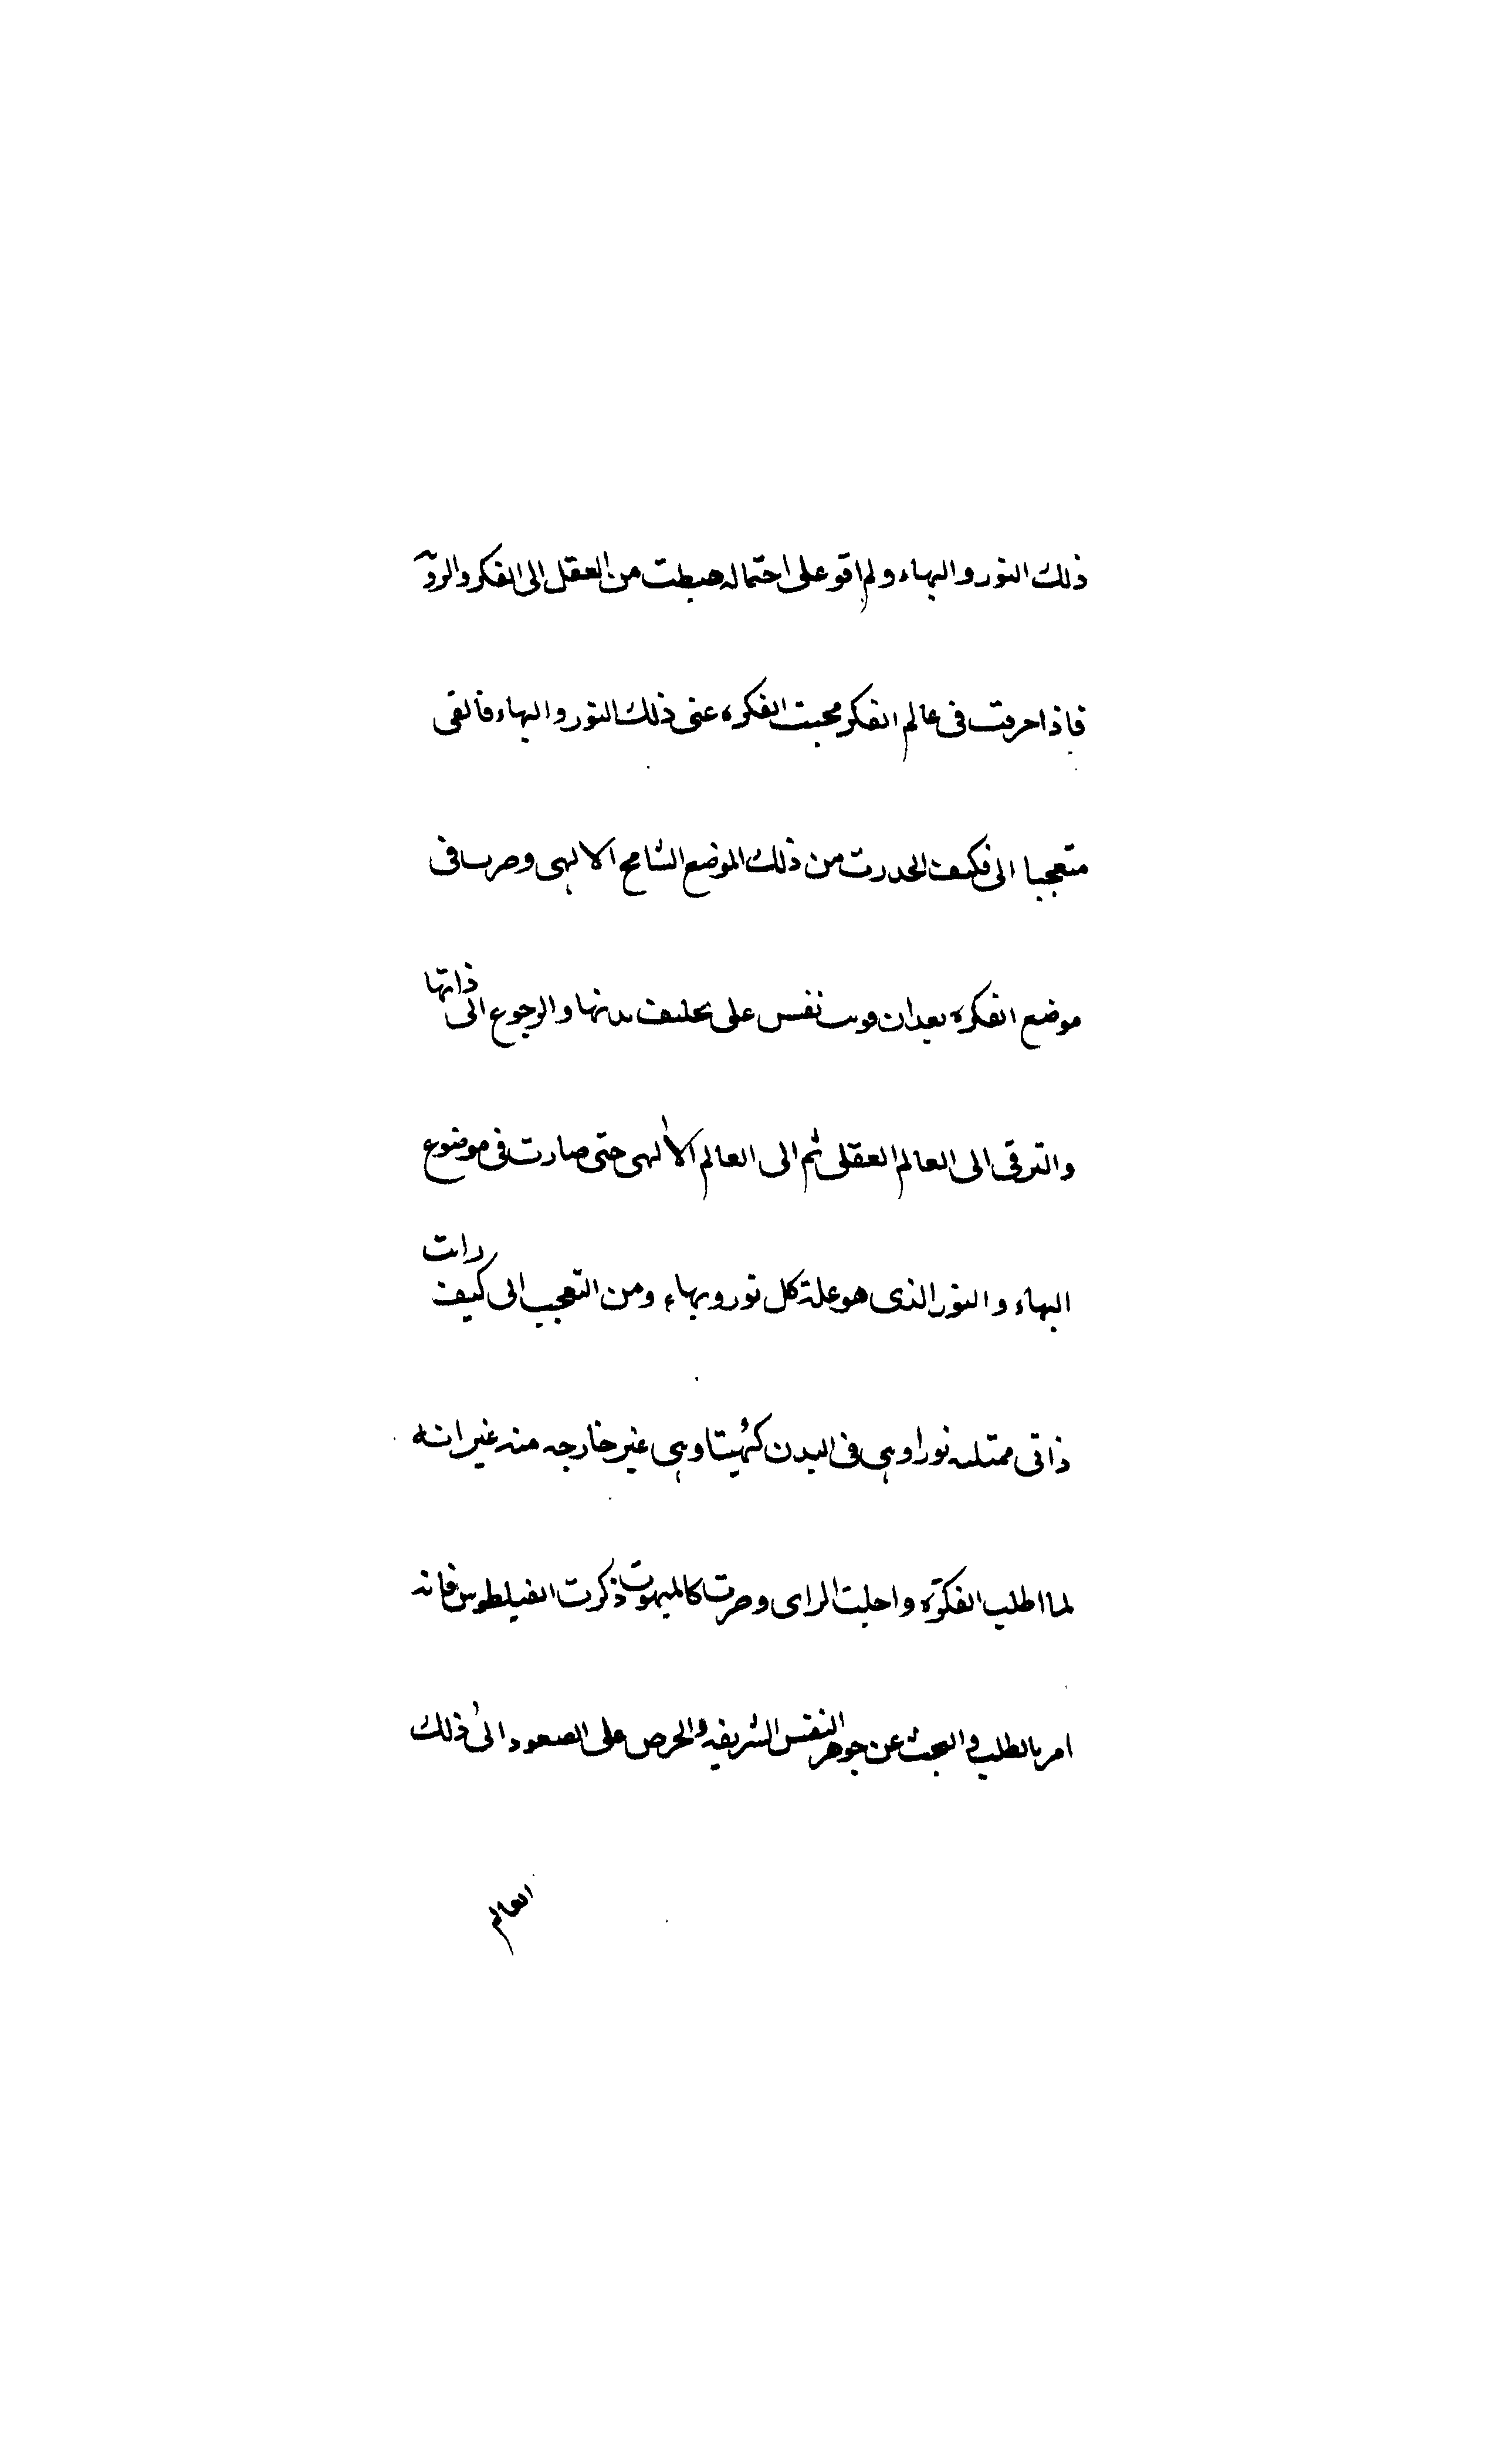 ذلك النور والبهاء ولم اقو على احتماله هبطت من العقل الى الفكر والروية
فاذا صرت فى عالم الفكر حجبت الفكره عنى ذلك النور والبهاء فالقى
متعجبا انى فكيف انحدرت من ذلك الموضع الشامخ الالهى وصرت فى
موضع الفكره بعد ان قويت نفسى على تخليف بدنها والرجوع الى ذاتها
والترقى الى العالم العقلى ثم الى العالم الالهى حتى صارت فى موضوع
البهاء والنور الذى هو علة كل نور وبهاء ومن التعجب انى كيف رات
ذاتى ممتليه نورا وهى فى البدن كهيئتها وهى غير خارجه منه غير انه
لما اطلب الفكرة واجلبت الراى وصرت كالمبهوت ذكرت الفيلطوس فانه
امر بالطلب والبحث عن جوهر النفس الشريفه والحرص على الصعود الى ذلك
العالم